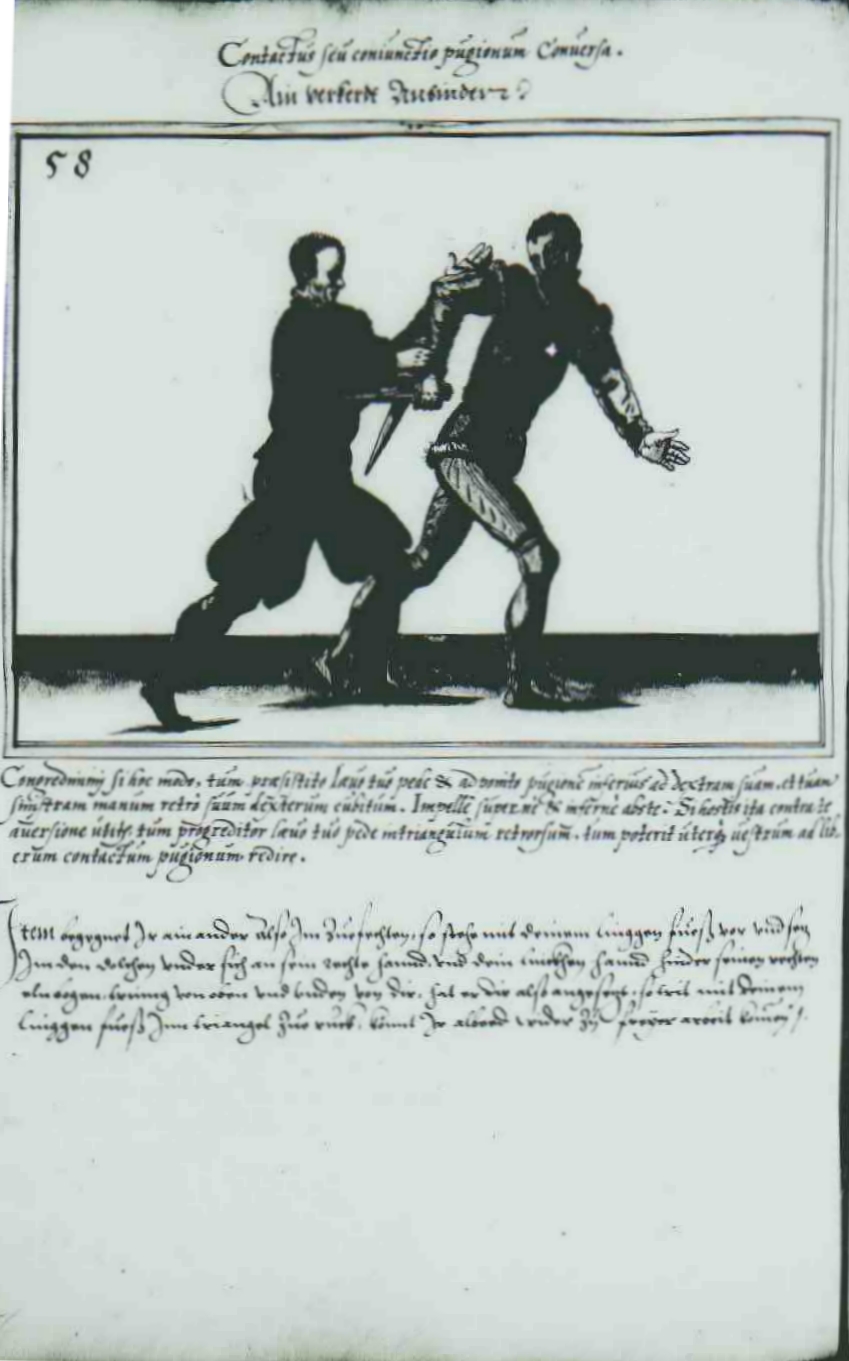 Contactus seu coniunctio pugionum Conuersa.
Ain verkerte Anbinden
58
Congredimini si hoc modo, tum præsistito læuo tuo pede & admoto pugione inferius ad dextram suam, et tuam
sinistram manum retrò suum dexterum cubitum. Impelle supernè & infernè abs te. Si hostis ita contra te
auersione utitur, tum progreditor læuo tuo pede in triangulum retrorsum, tum poterit uterq, uestrum ad lib,
erum contactum pugionum redire.
Item begegnet Ir ainander also Im Zůfechten, so stehe mit deinem linggen fůeß vor vnd setz
Im den dolchen vnder sich an sein rechte hannd, vnd dein linckhen hannd hinder seinen rechten
elnbogen, trinng von oben vnd vnden von dir, hat er dir also angesetzt, so trit mit deinem
linggen fůeß Inn triangel Zůe ruck, konnt Ir albeed wider Zů freyer arbeit komen